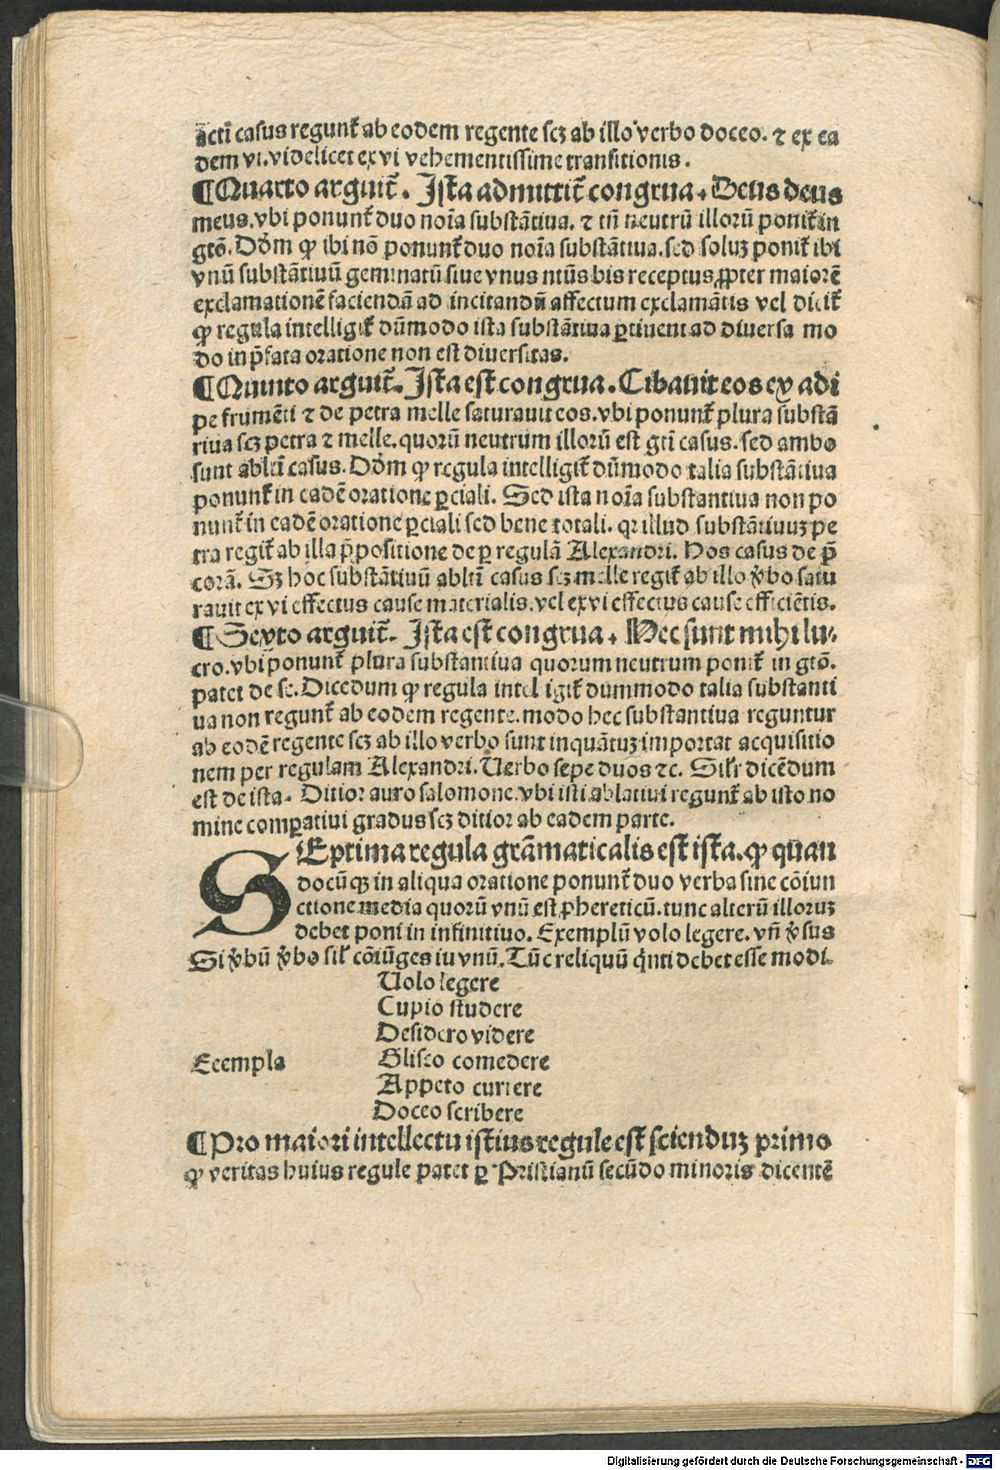 acti casus regunt᷑ ab eodem regente scꝫ ab illo verbo doceo. ⁊ ex ea
dem vi. videlicet ex vi vehementissime transitionis.
¶Quarto arguit᷑. Ista admittit᷑ congrua. Deus deus
meus. vbi ponunt᷑ duo noīa substātiua. ⁊ tn̄ neutrū illorū ponit᷑ in
gtō. Dōm ꝙ ibi nō ponunt᷑ duo noīa substātiua. sed soluꝫ ponit᷑ ibi
vnū substātiuū geminatū siue vnus ntūs bis receptus ꝓpter maiorē
exclamationē faciendā ad incitandū affectum exclamātis vel dicit᷑
ꝙ regula intelligit᷑ dūmodo ista substātiua ꝑtineut ad diuersa mo
do in p̄fata oratione non est diuersitas.
¶Quinto arguit᷑. Ista est congrua. Cibauit eos ex adi
pe frumēti ⁊ de petra melle saturauit eos. vbi ponunt᷑ plura substā
tiua scꝫ petra ⁊ melle. quorū neutrum illorū est gti casus. sed ambo
sunt ablti casus. Dōm ꝙ regula intelligit᷑ dūmodo talia substātiua
ponunt᷑ in eadē oratione ꝑciali. Sed ista noīa substantiua non po
nunt᷑ in eadē oratione ꝑciali sed bene totali. qr illud substātiuuꝫ pe
tra regit᷑ ab illa p̄positione de ꝑ regulā Alexandri. Hos casus de p̄
corā. Sꝫ hoc substātiuū ablti casus scꝫ melle regit᷑ ab illo v̓bo satu
rauit ex vi effectus cause materialis. vel ex vi effectus cause efficiētis.
¶Sexto arguit᷑. Ista est congrua. Hec sunt mihi lu⸗
cro. vbi ponunt᷑ plura substantiua quorum neutrum ponit᷑ in gtō.
patet de se. Dicedum ꝙ regula intelligit᷑ dummodo talia substanti
ua non regunt᷑ ab eodem regente. modo hec substantiua reguntur
ab eodē regente scꝫ ab illo verbo sunt inquātuꝫ importat acquisitio
nem per regulam Alexandri. Uerbo sepe duos ⁊c. Silr̄ dicēdum
est de ista. Ditior auro salomone. vbi isti ablatiui regunt᷑ ab isto no
mine comꝑatiui gradus scꝫ ditior ab eadem parte.
SEptima regula grāmaticalis est ista. ꝙ quan
docūqꝫ in aliqua oratione ponunt᷑ duo verba sine cōiun
ctione media quorū vnū est ꝑhereticū. tunc alterū illoruꝫ
debet poni in infinitiuo. Exemplū volo legere. vn̄ v̓sus
Si v̓bū v̓bo sil̓ cōiūges iu vnū. Tūc reliquū q̓nti debet esse modi.
Uolo legere
Cupio studere
Desidero videre
Exempla Glisco comedere
Appeto currere
Doceo scribere
¶Pro maiori intellectu istius regule est scienduꝫ primo
ꝙ veritas huius regule patet ꝑ Pristianū secūdo minoris dicentē
Digitalisierung gefördert durch die Deutsche Forschungsgemeinschaft - DFG